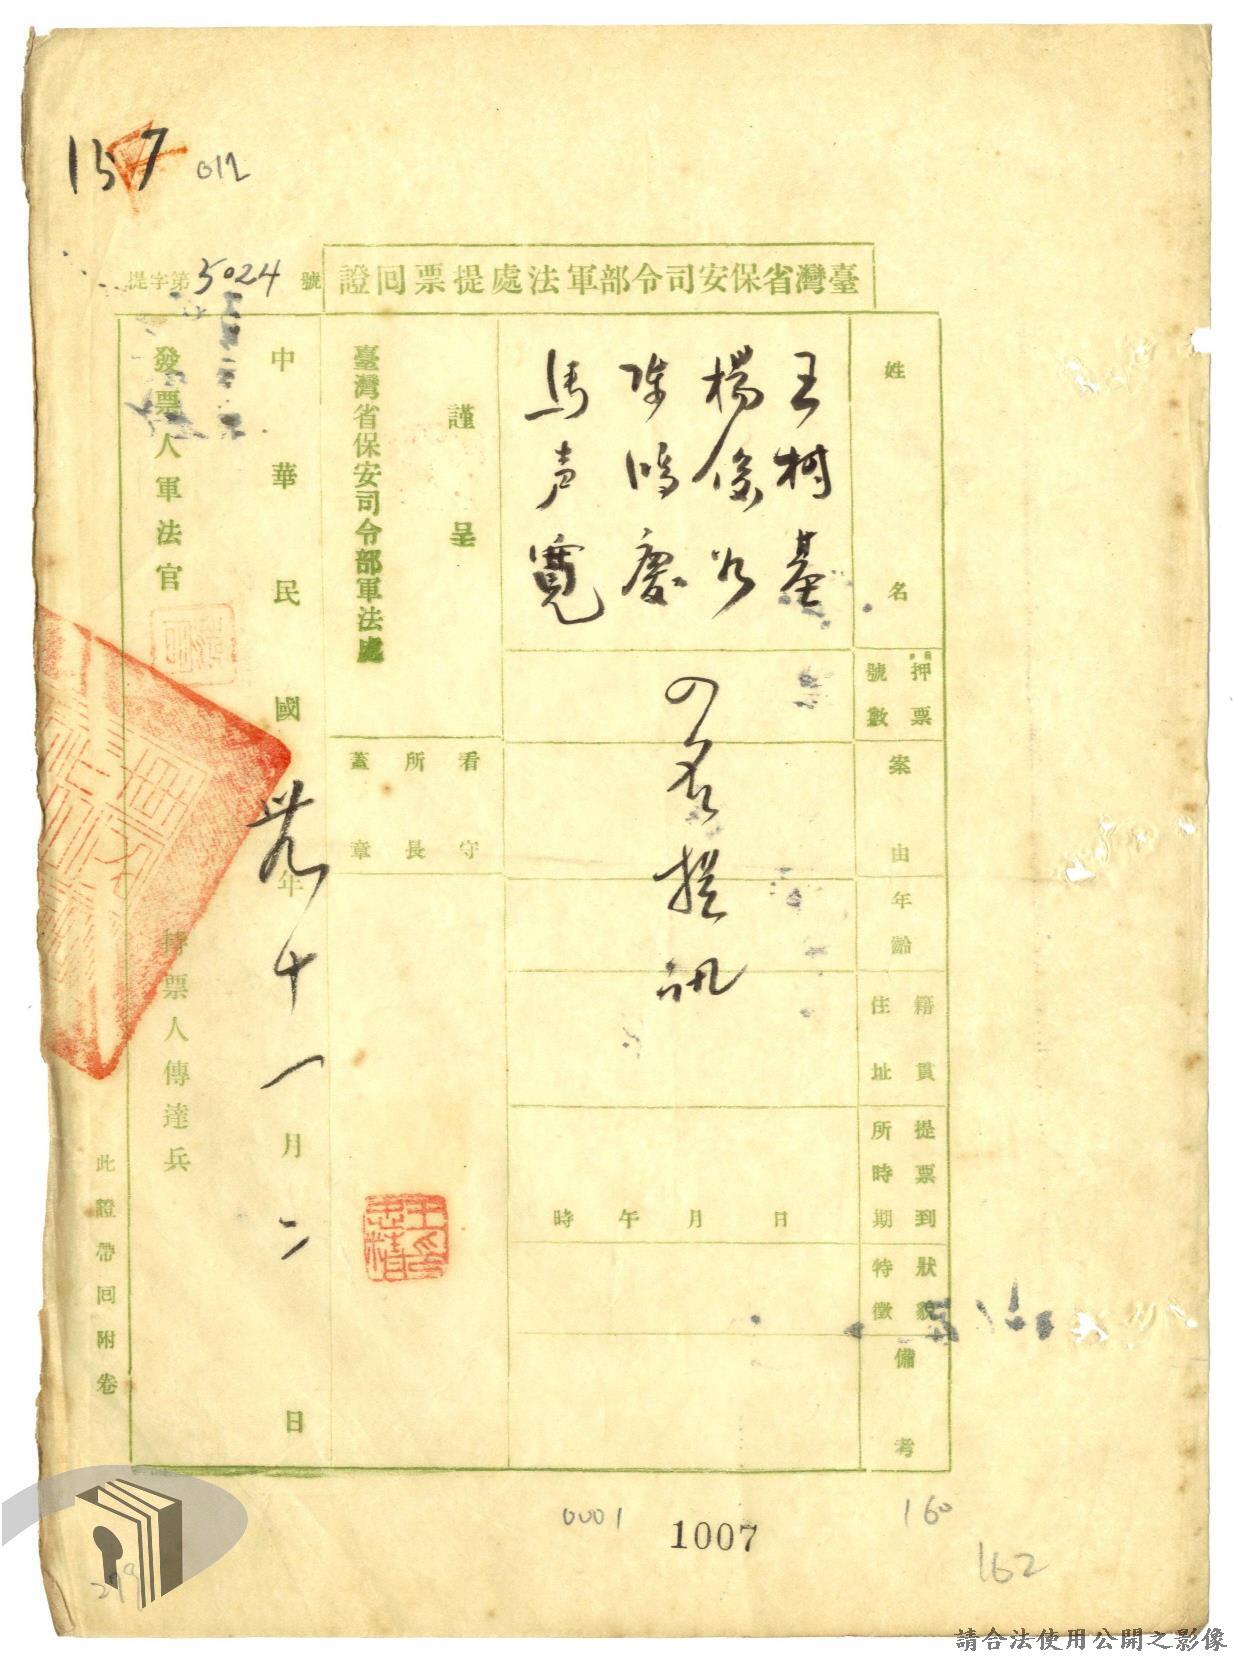 157
012
臺灣省保安司令部軍法處提票回證
提字第5024號
姓名
押票號數
案由
年齡
籍貫住址
提票到所時期
狀貌特徵
備考
王樹基
楊俊
陳鳴慶
馬声寬
の名提訊
日月午時
謹呈
臺灣省保安司令部軍法處
看守所長蓋章
中華民國卅九年十一月二日
發票人軍法官
持票人傳達兵
此證帶回附卷
0001
1007
160
162
299
請合法使用公開之影像